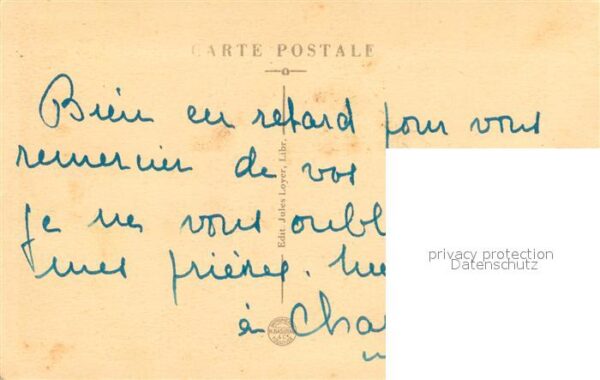 CARTE POSTALE
Bien en retard pour vous
remercier de vos
je ne vous oubl
mes prières.
à Cha
Edit. Jules Loyer, Libr.
privacy protection
Datenschutz